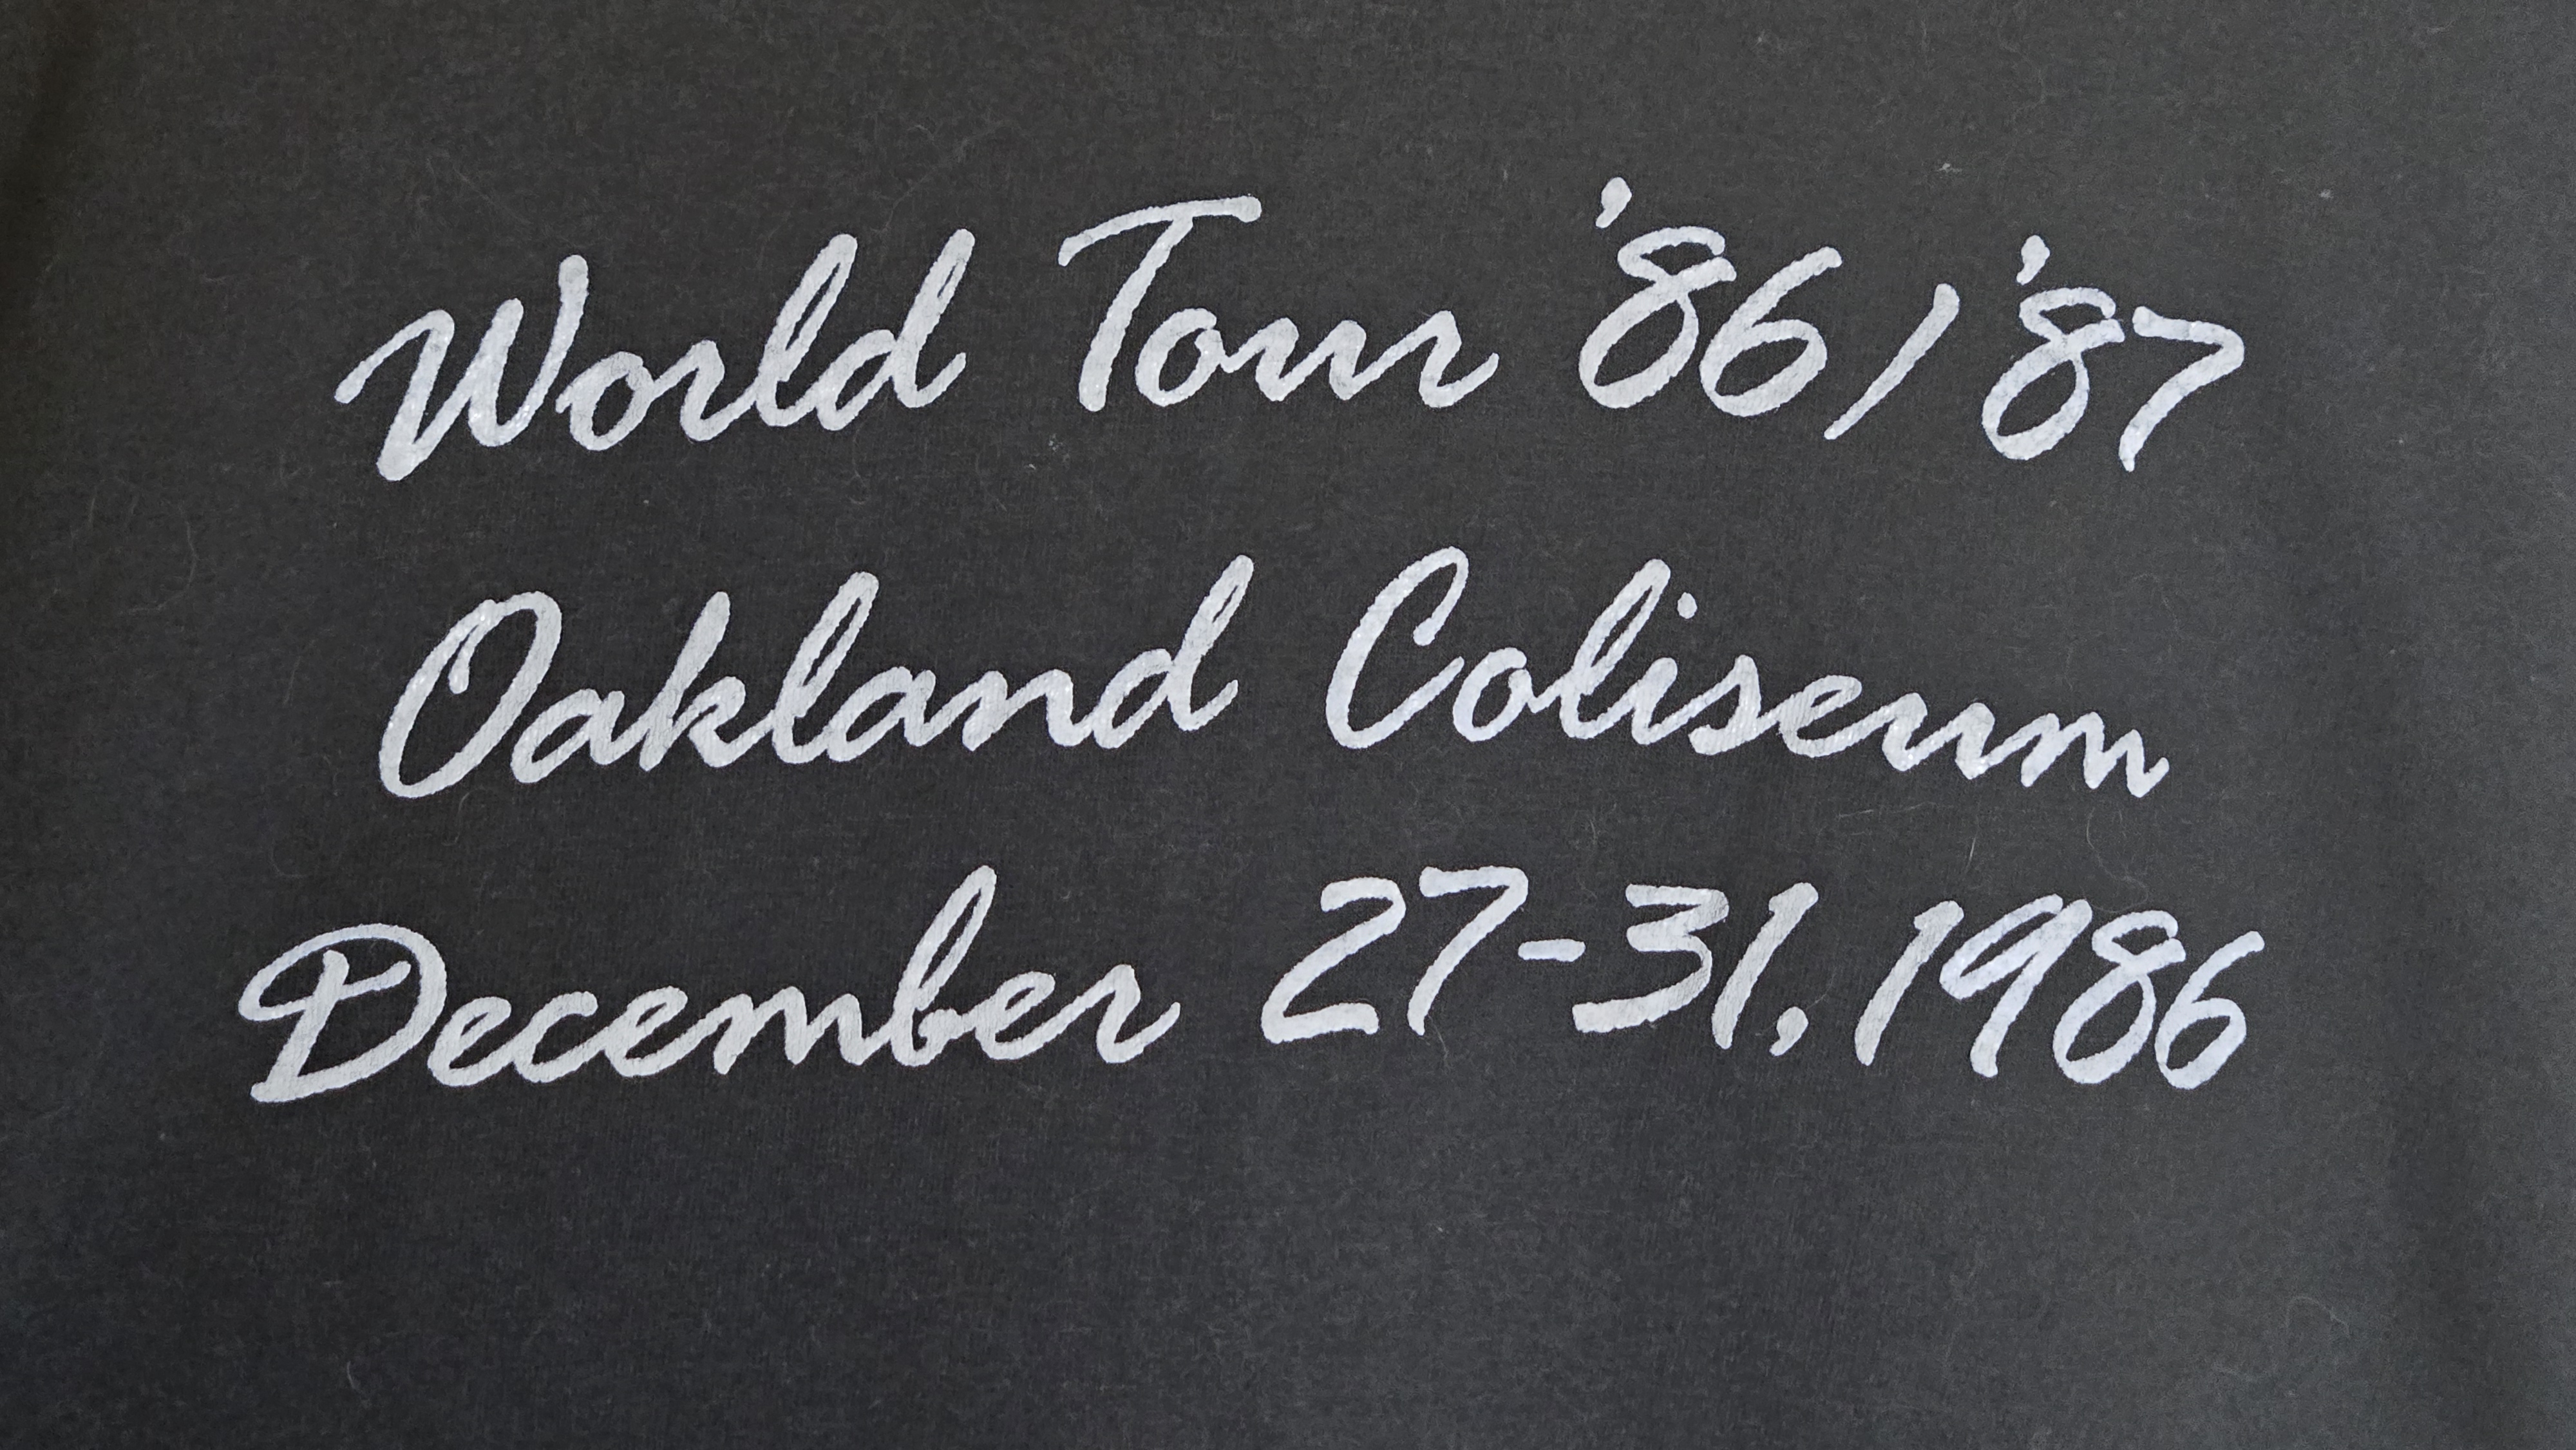 World Tour '86/'87
Oakland Coliseum
December 27-31, 1986